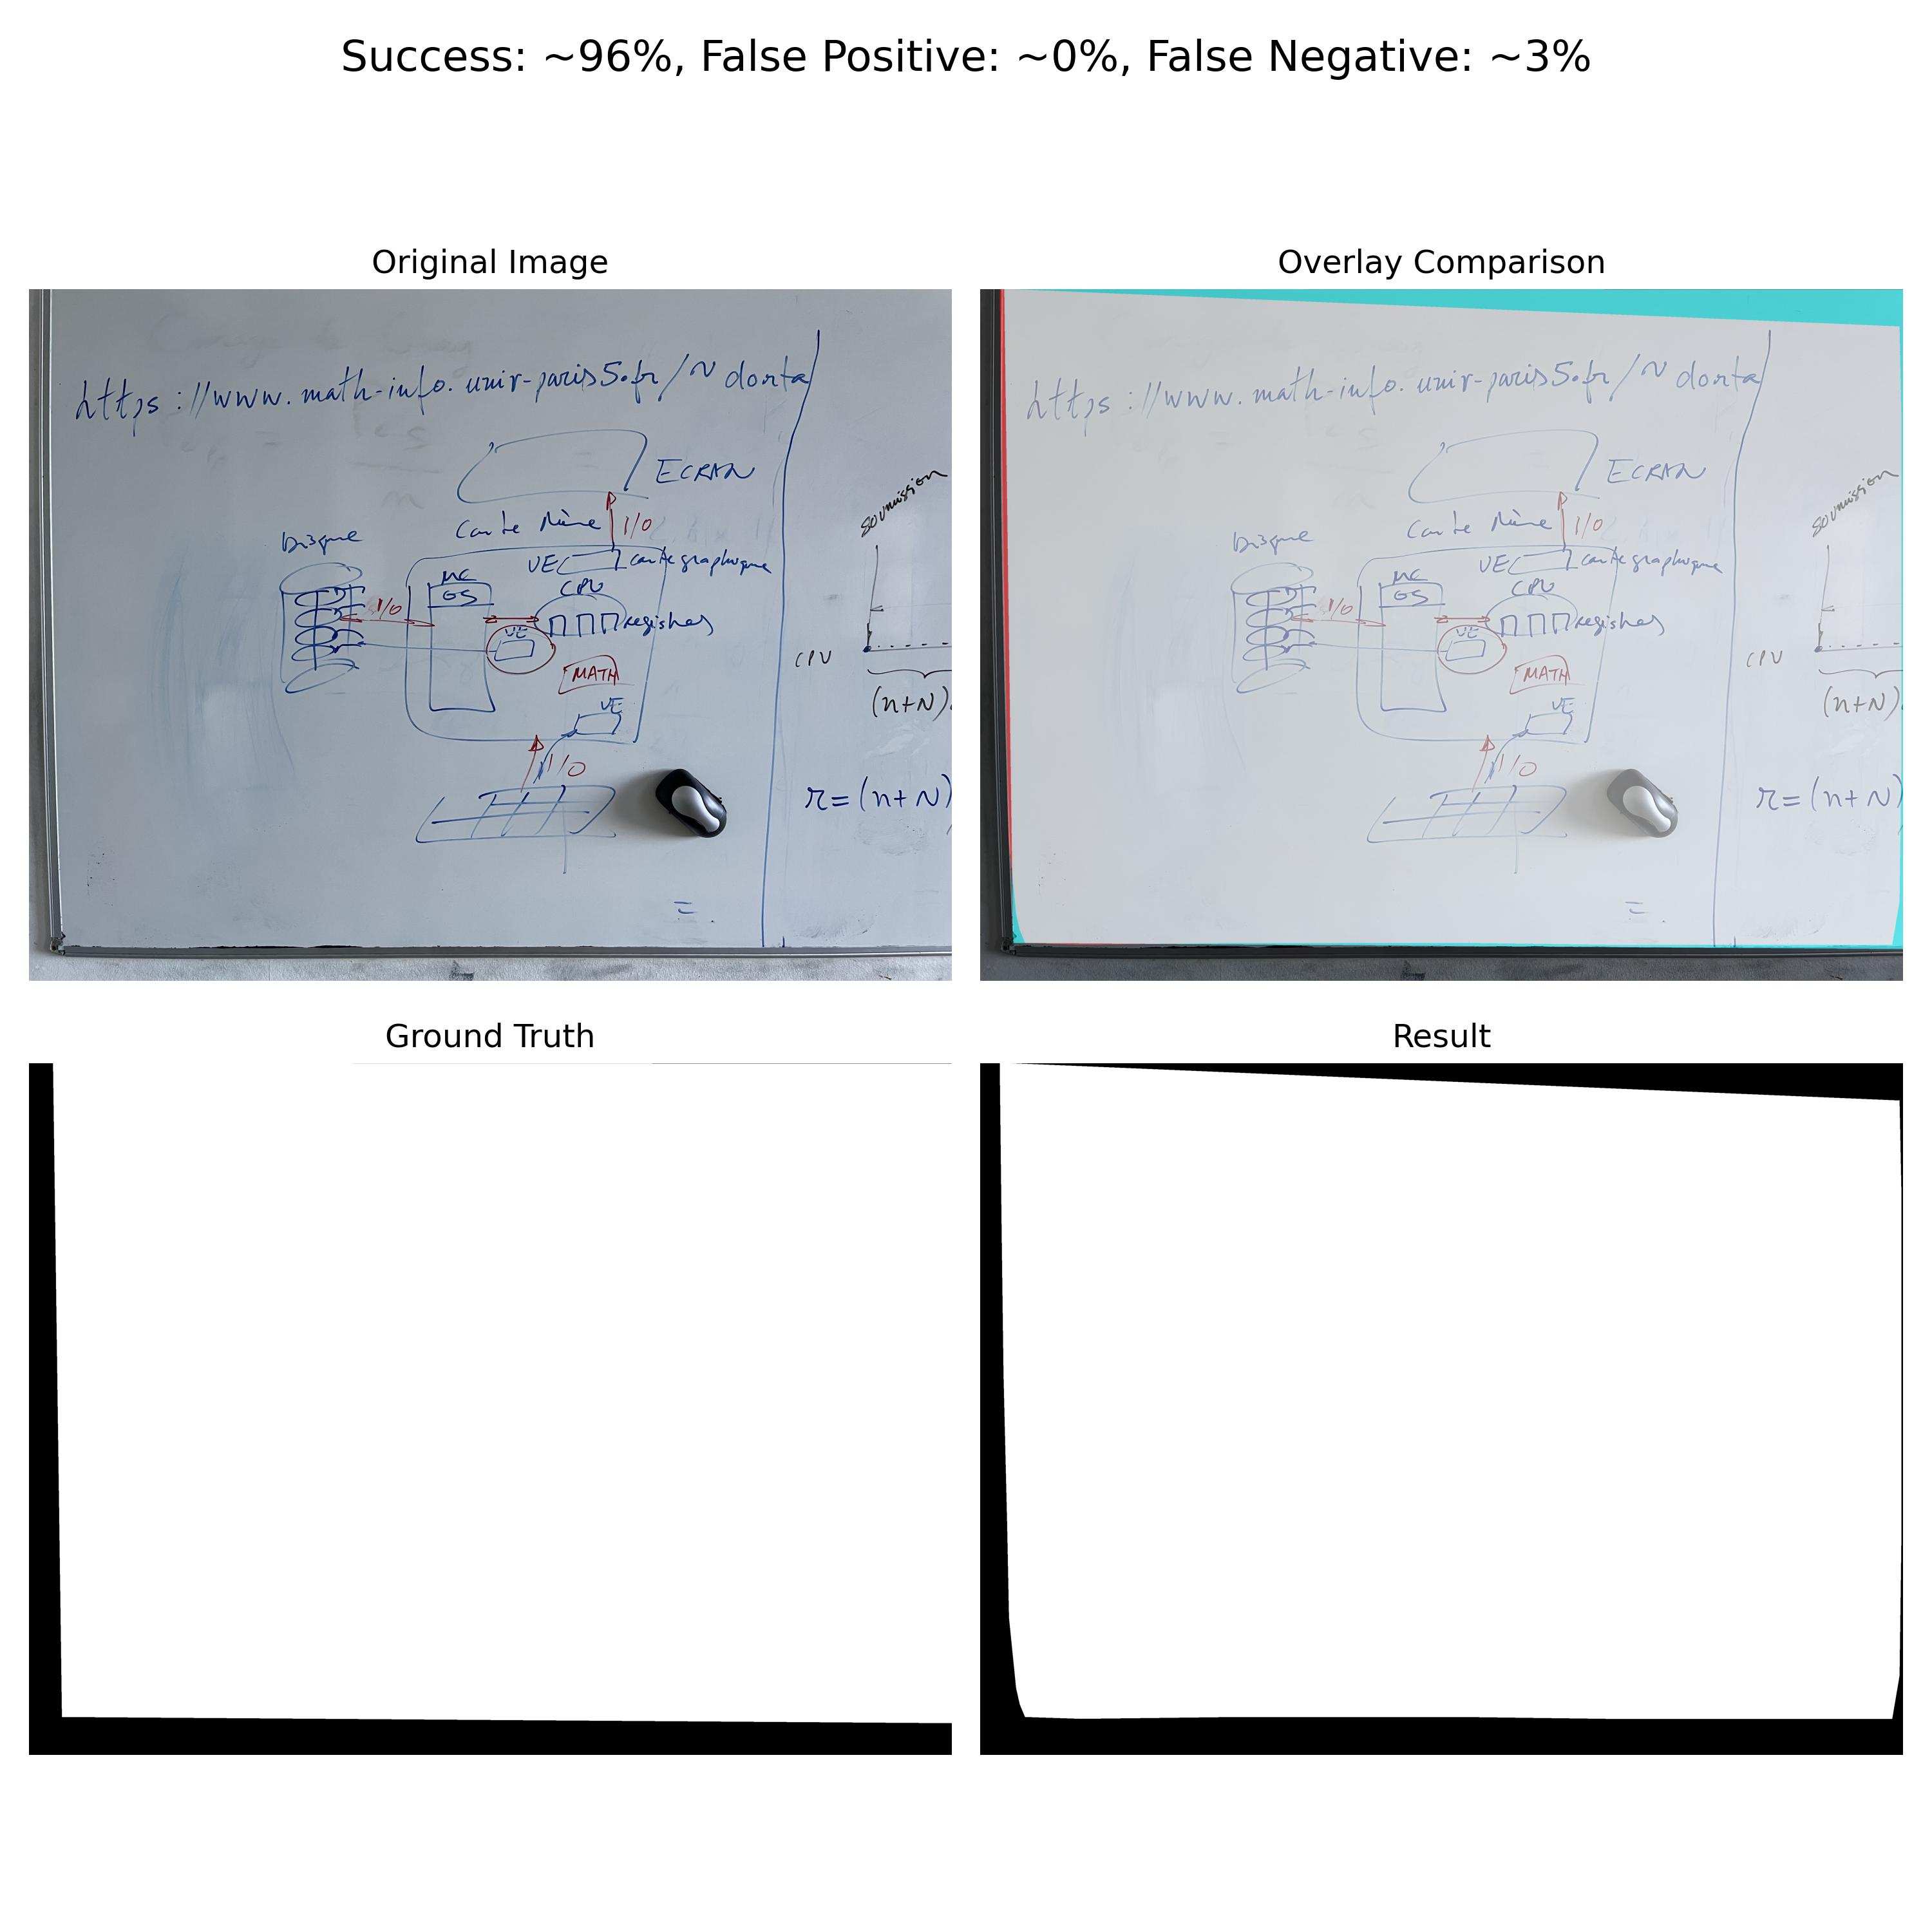 Success: ~96%, False Positive: ~0%, False Negative: ~3%
Original Image
https://www.math-info.univ-paris5.fr/~donta
ECRAN
Carte Mère
I/O
Disque
VE
carte graphique
MC
GS
CPU
I/O
VE
registres
MATH
VE
I/O
=.
soumission
CPU
(n+N).
r=(n+N)
Overlay Comparison
https://www.math-info.univ-paris5.fr/~donta
ECRAN
Carte Mère
I/O
Disque
VE
carte graphique
MC
GS
CPU
I/O
VE
registres
MATH
VE
I/O
=.
soumission
CPU
(n+N).
r=(n+N)
Ground Truth
Result